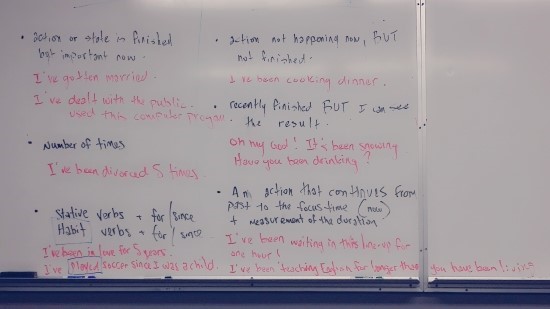 • action or state is finished
but important now.
I've gotten married.
I've dealt with the public.
used this computer program.
• Number of times
I've been divorced 5 times.
• Stative verbs + for / since
Habit verbs + for / since
I've been in love for 5 years.
I've played soccer since I was a child.
• action not happening now, BUT
not finished.
I've been cooking dinner.
• recently finished BUT I can see
the result.
Oh my God! It's been snowing
Have you been drinking?
• An action that continues from
past to the focus time (now)
+ measurement of the duration
I've been waiting in this line for
one hour!
I've been teaching English for longer than you have been living